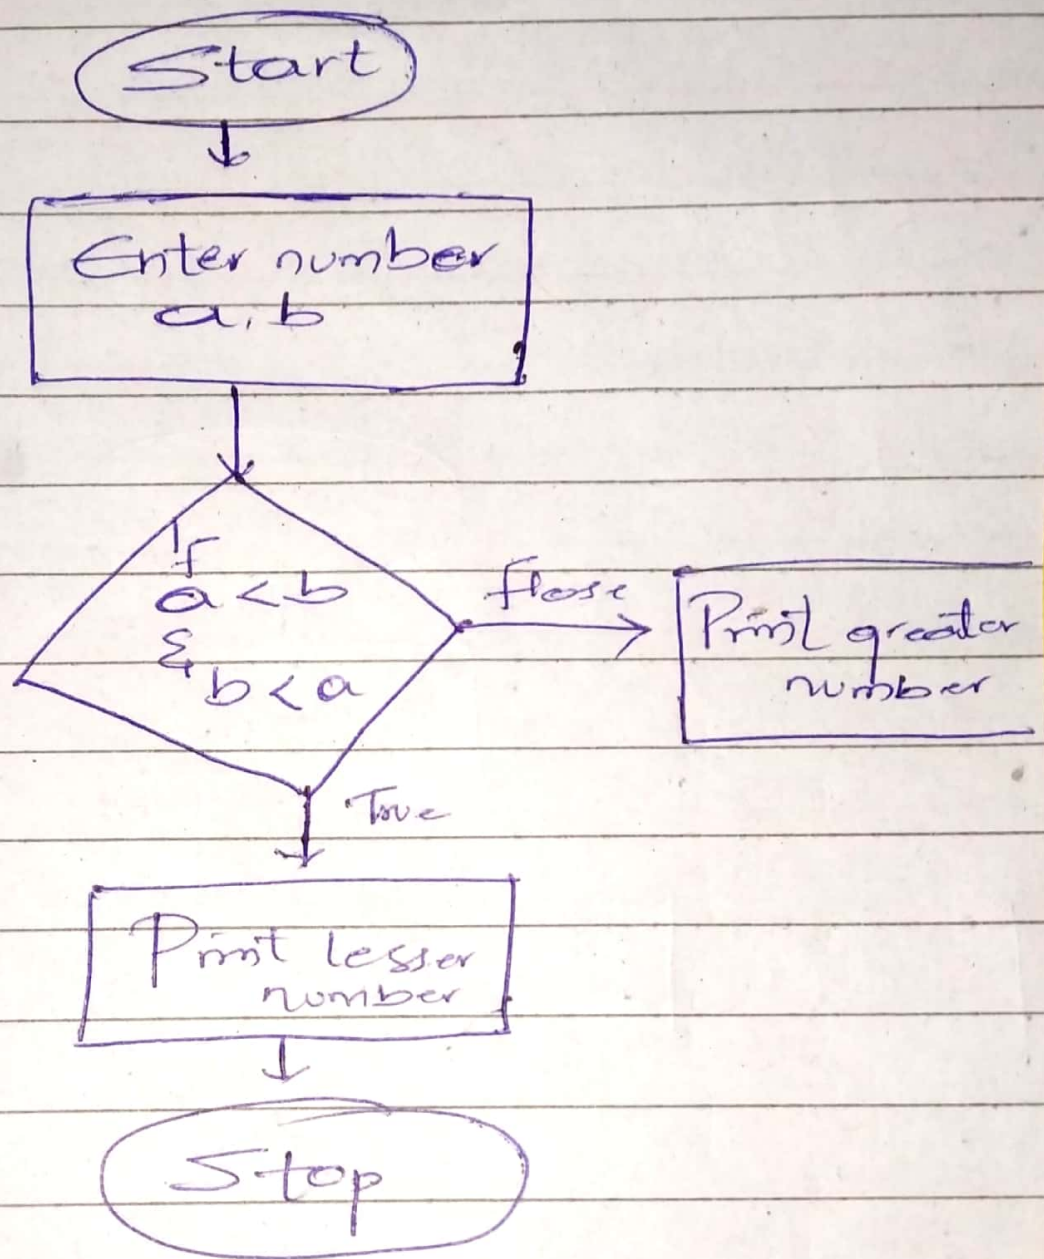 Start
Enter number
a, b
If
a < b
&
b < a
flase
Print greater
number
True
Print lesser
number
Stop